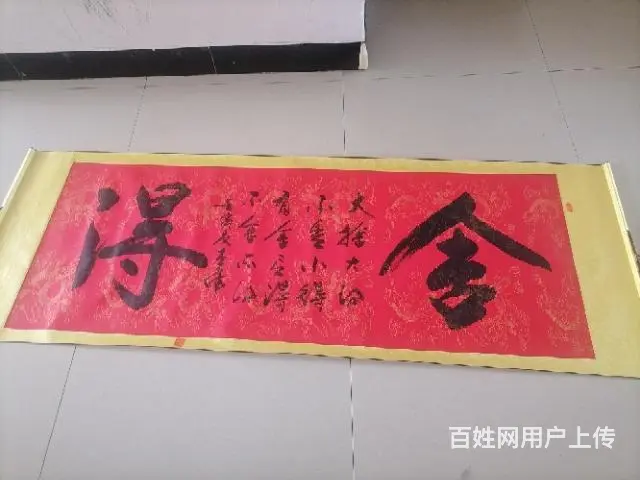 舍
大舍大得
小舍小得
有舍有得
不舍不得
得
百姓网用户上传